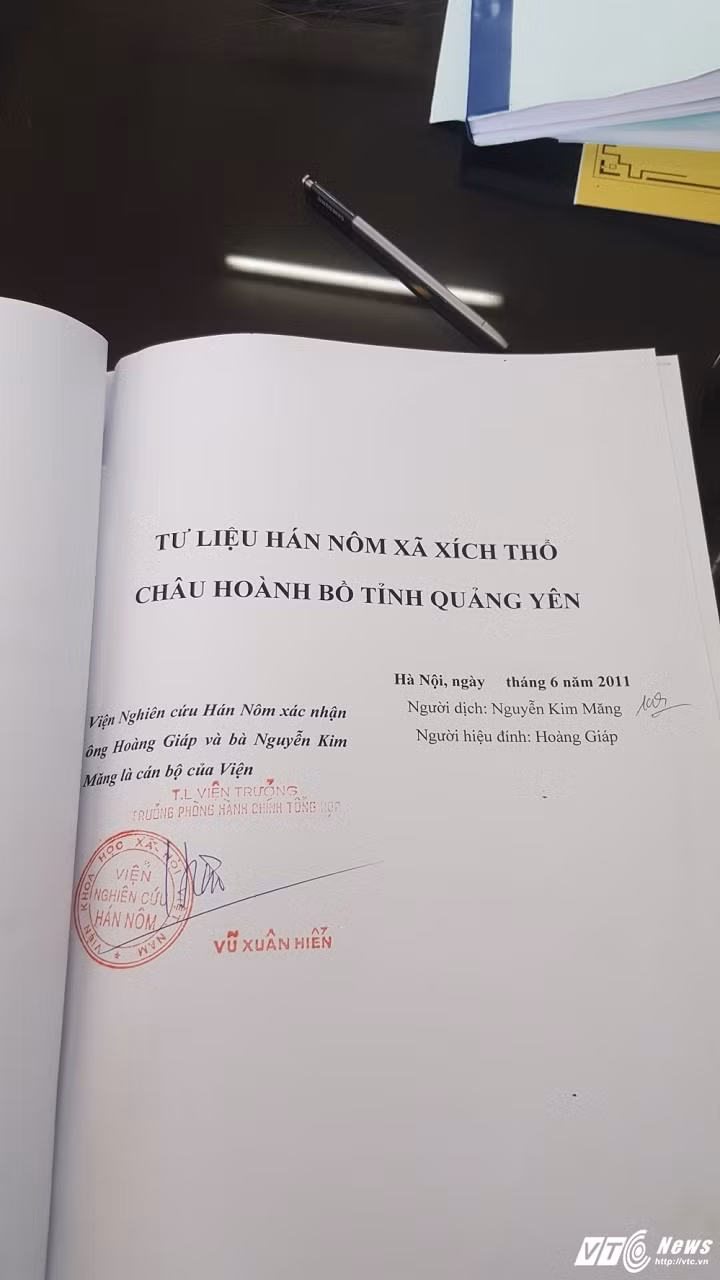 SAMSUNG
TƯ LIỆU HÁN NÔM XÃ XÍCH THỔ
CHÂU HOÀNH BỒ TỈNH QUẢNG YÊN
Hà Nội, ngày tháng 6 năm 2011
Người dịch: Nguyễn Kim Măng
Người hiệu đính: Hoàng Giáp
Viện Nghiên cứu Hán Nôm xác nhận
ông Hoàng Giáp và bà Nguyễn Kim
Măng là cán bộ của Viện
T.L VIỆN TRƯỞNG
TRƯỞNG PHÒNG HÀNH CHÍNH TỔNG HỢP
VIỆN KHOA HỌC XÃ HỘI VIỆT NAM
VIỆN
NGHIÊN CỨU
HÁN NÔM
VŨ XUÂN HIỂN
VTC News
http://vtc.vn